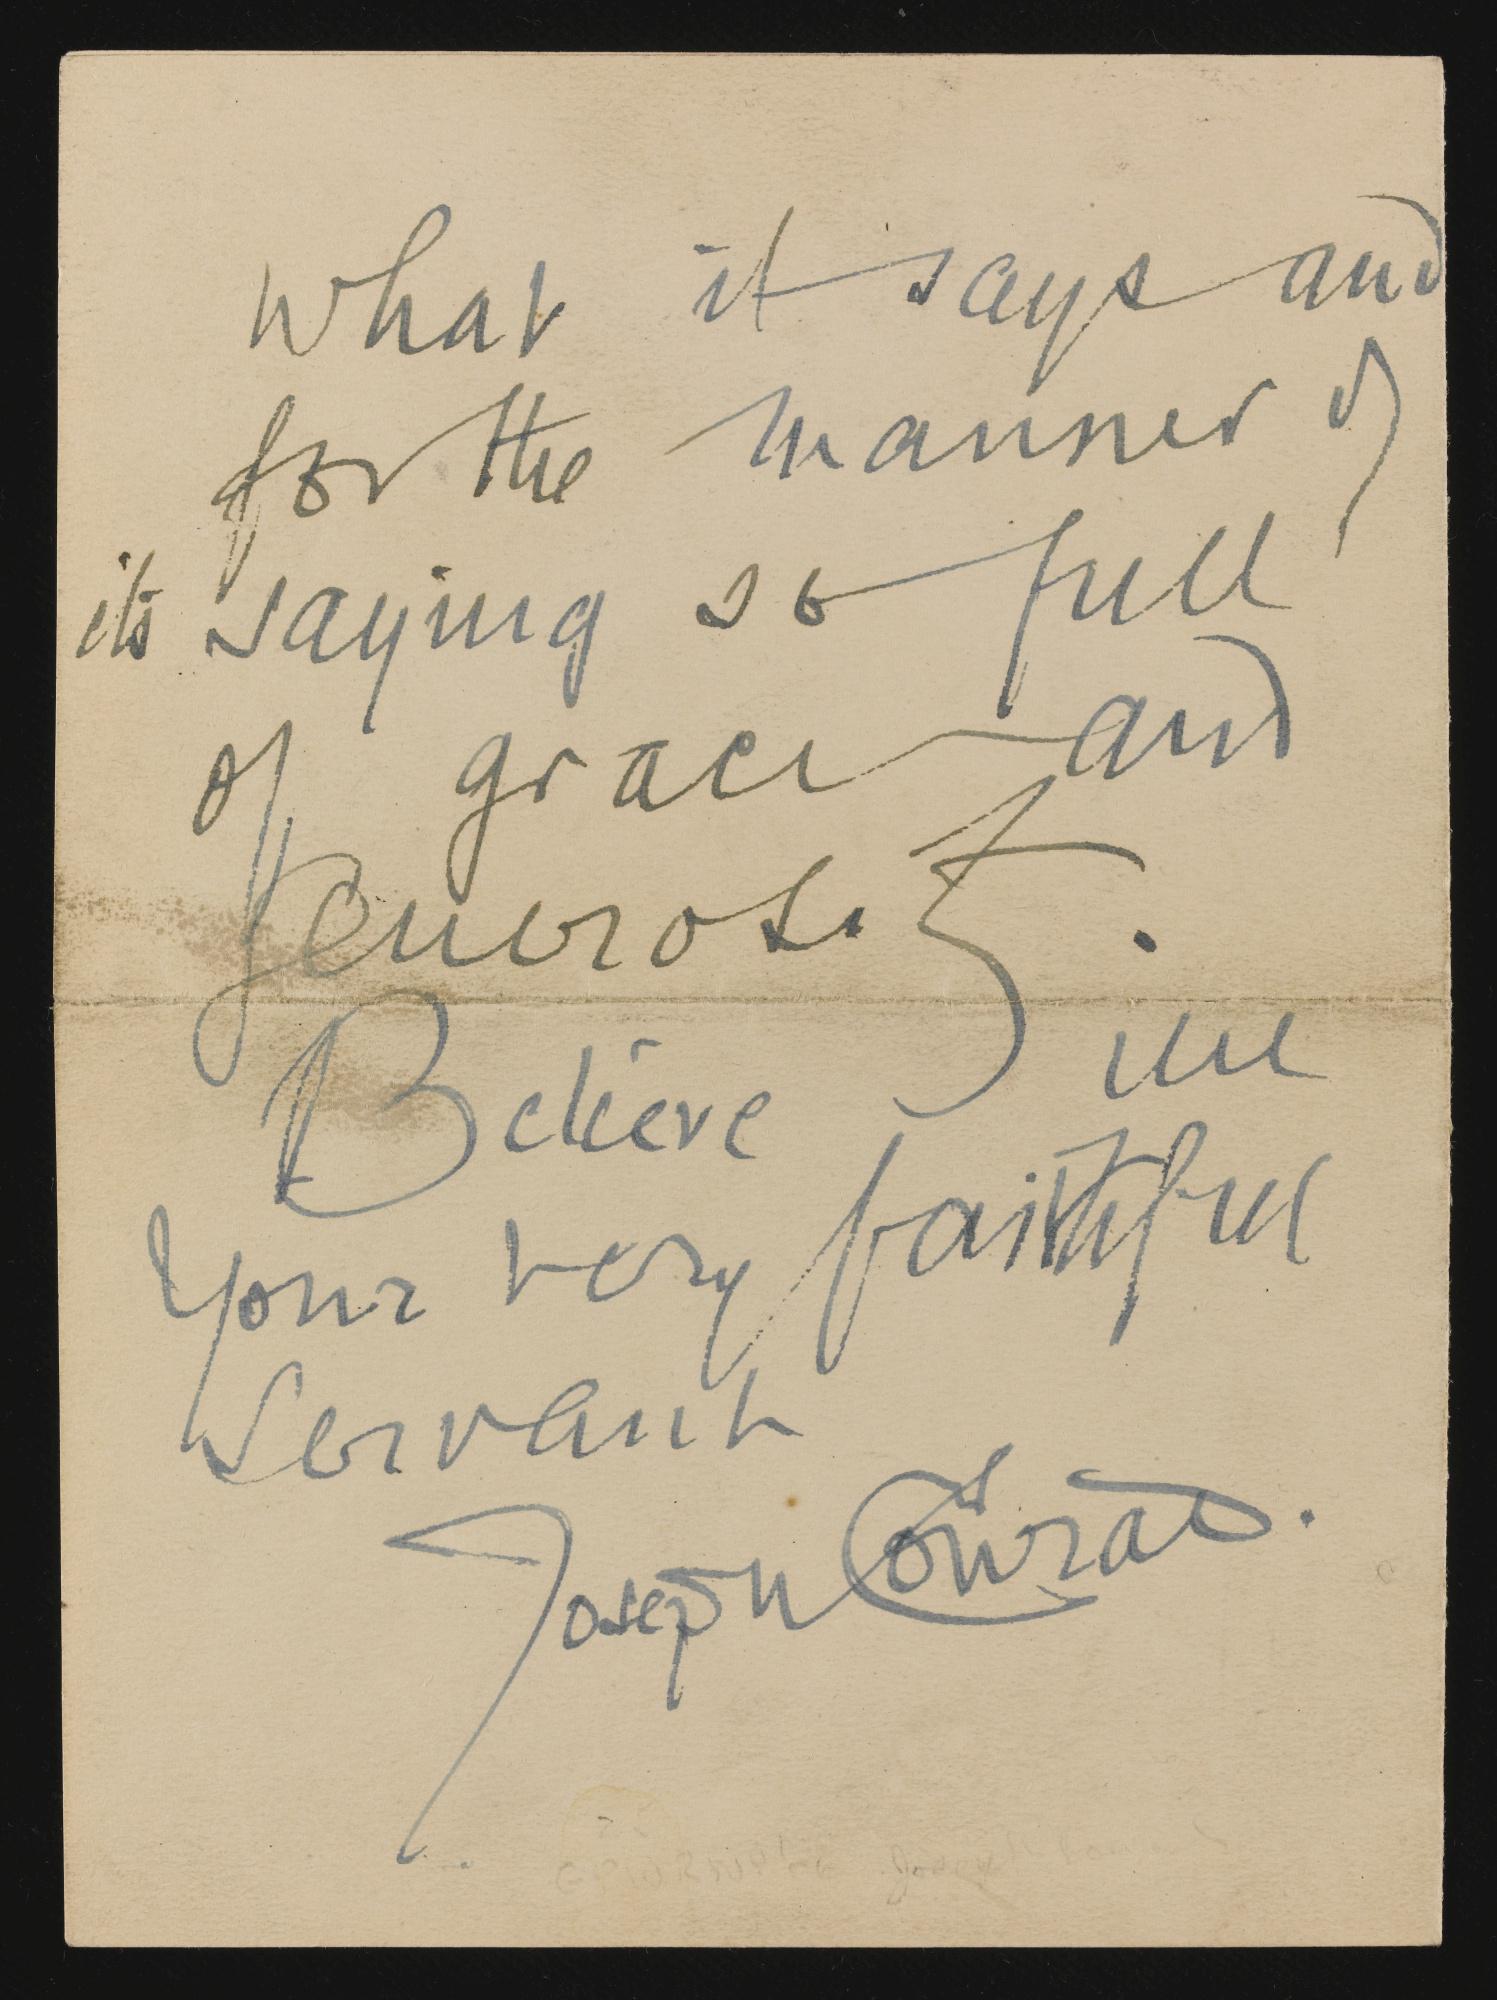 what it says and
for the manner of
its saying so full
of grace and
generosity.
Believe me
Your very faithful
servant
Joseph Conrad.